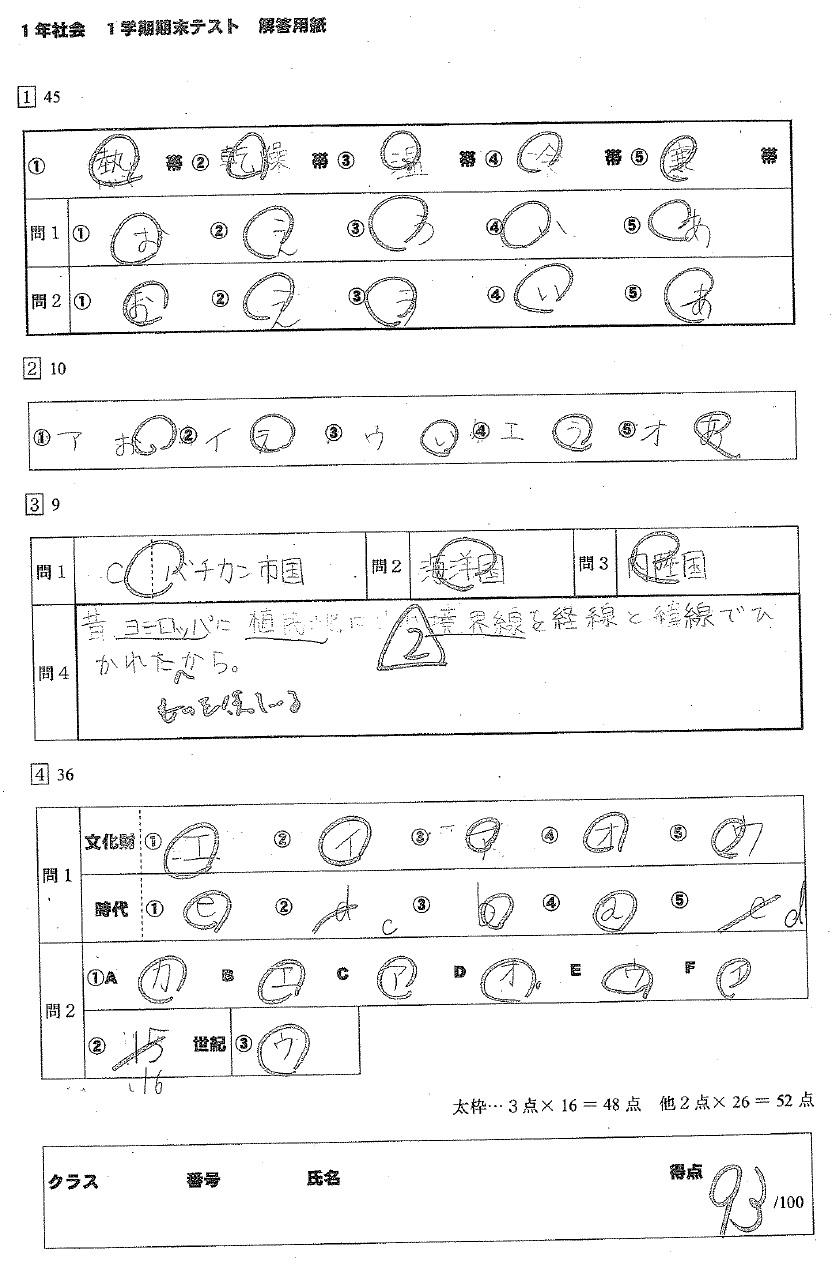 1年社会 1学期期末テスト 解答用紙
1 45
① 熱 帯 ② 乾燥 帯 ③ 温 帯 ④ 冷 帯 ⑤ 寒 帯
問1 ① お ② え ③ う ④ い ⑤ あ
問2 ① お ② え ③ う ④ い ⑤ あ
2 10
①ア お ②イ え ③ウ い ④エ う ⑤オ あ
3 9
問1 C バチカン市国 問2 海洋国 問3 内陸国
昔ヨーロッパに植民地に 境界線を経線と緯線でひ
問4 かれたから。
2
4 36
問1 文化財 ① エ ② イ ③ ア ④ オ ⑤ ウ
時代 ① e ② d c ③ b ④ a ⑤ c d
問2 ①A カ B エ C ア D オ E ウ F イ
② 15 世紀 ③ ウ
16
太枠…3点×16=48点 他2点×26=52点
クラス 番号 氏名 得点 93 /100